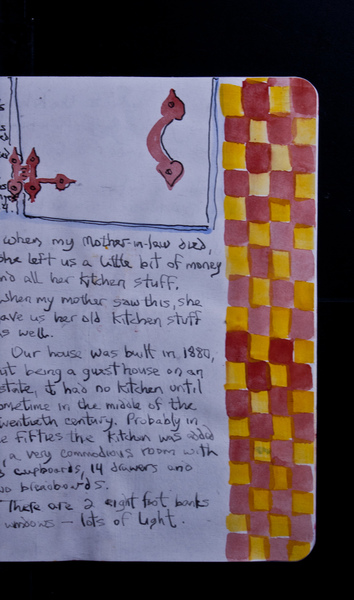 when my Mother-in-law died,
she left us a little bit of money
nd all her kitchen stuff.
when my mother saw this, she
ave us her old kitchen stuff
s well.
Our house was built in 1880,
ut being a guest house on an
state, it had no kitchen until
ometime in the middle of the
wentieth century. Probably in
e fifties the kitchen was added
, a very commodious room with
cupboards, 14 drawers and
wo breadboards.
There are 2 eight foot banks
windows – lots of light.